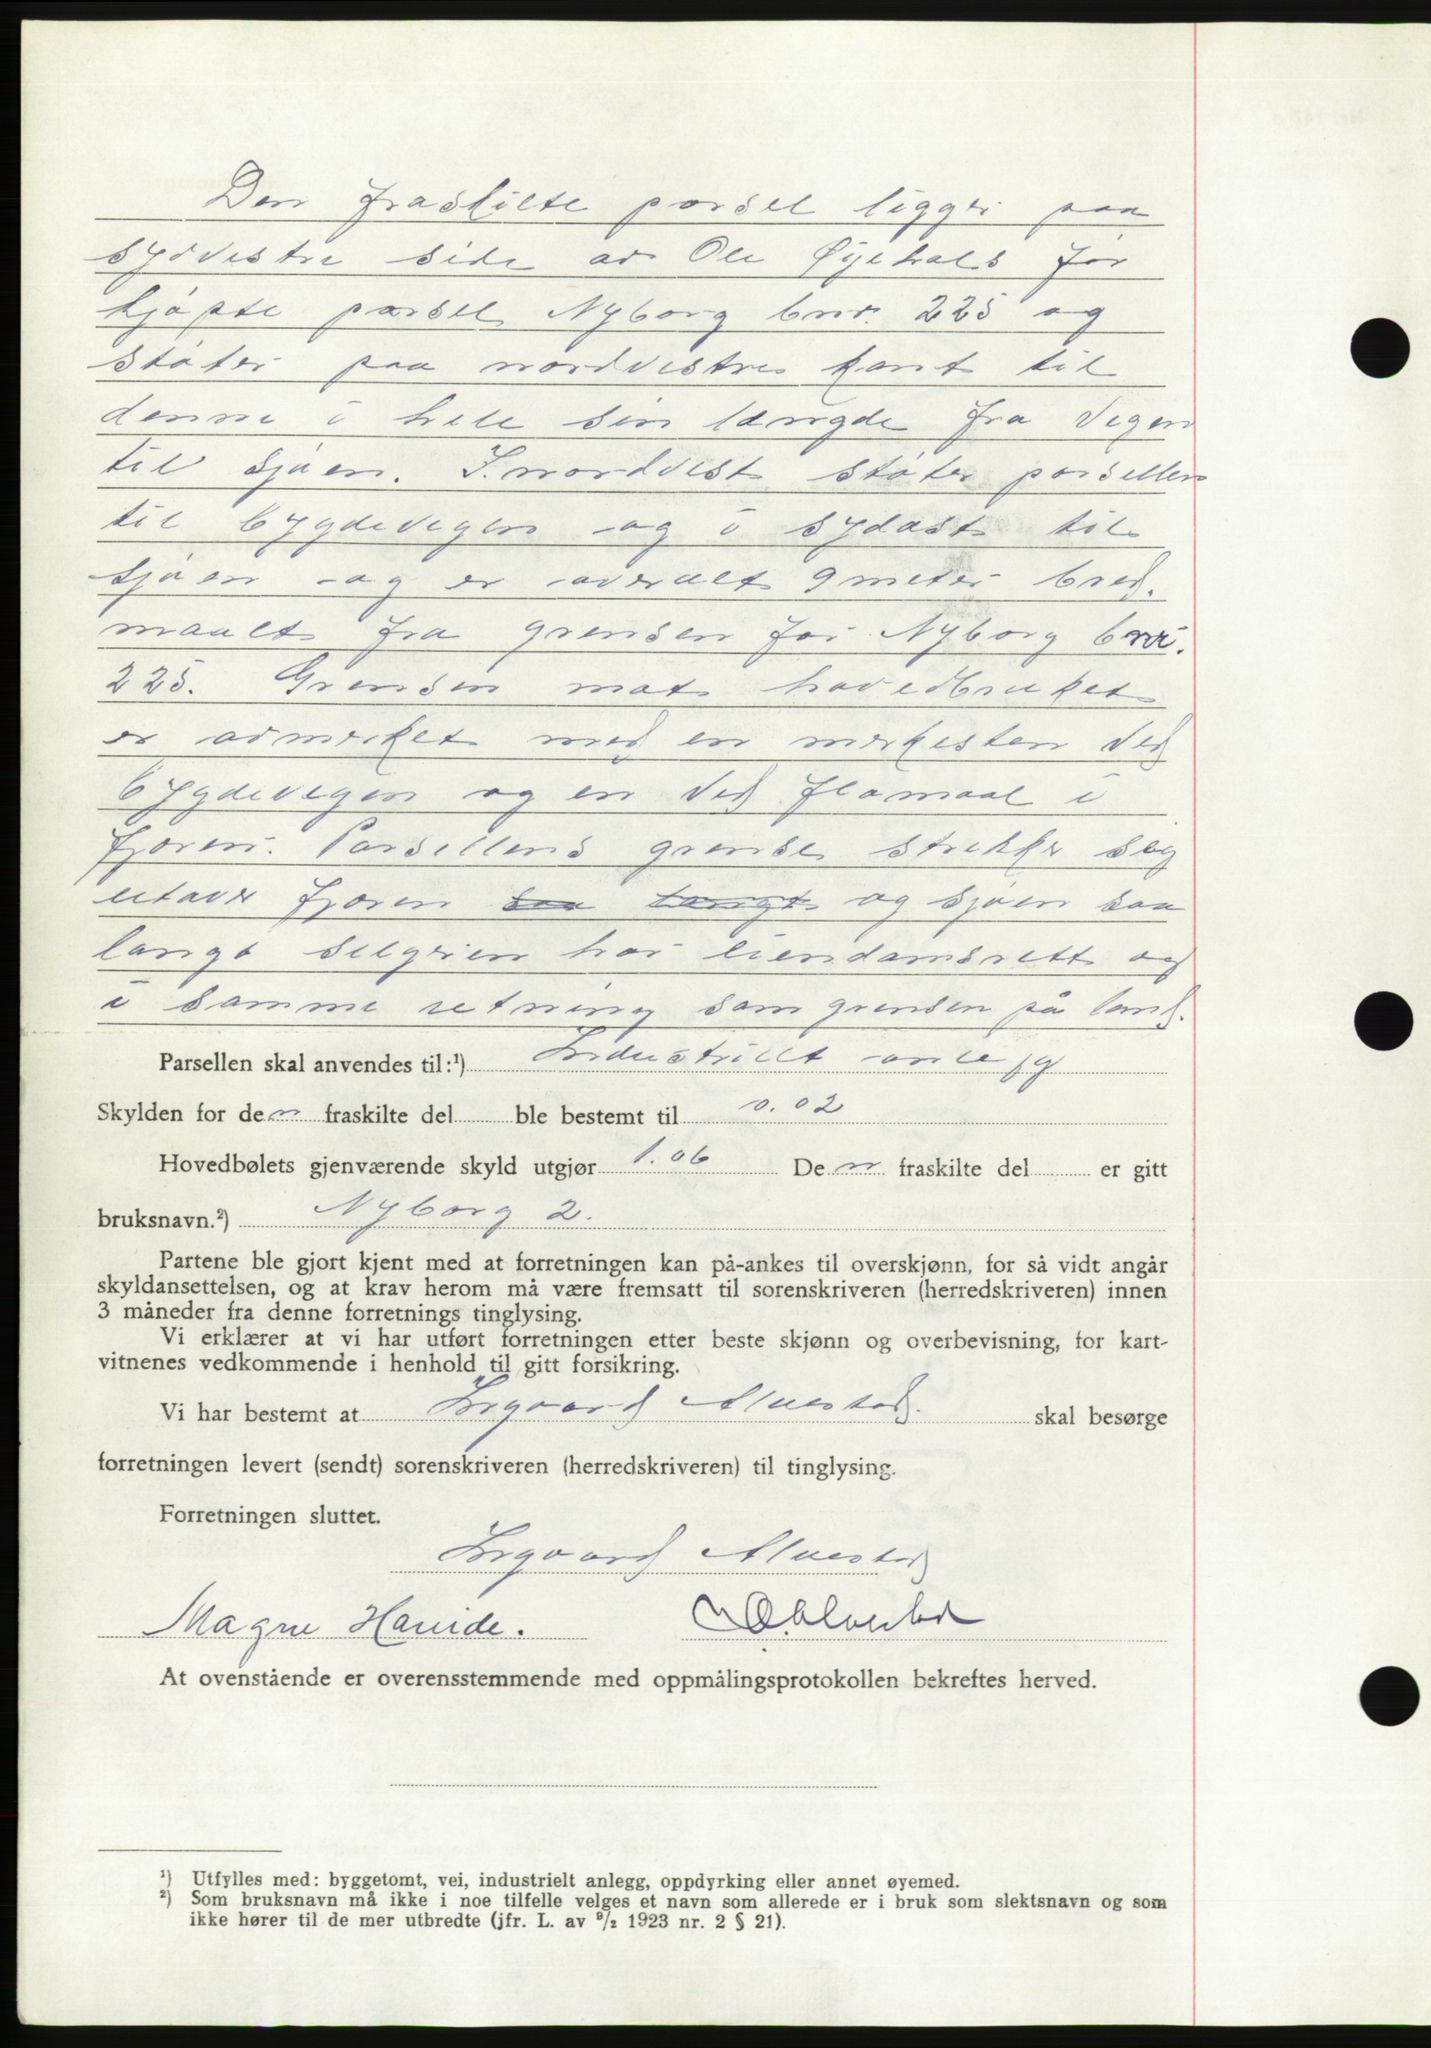 Den fraskilte parsel ligger paa
sydvestre side av Ole Øyehals før
kjøpte parsel Nyborg bnr. 225 og
støter paa nordvestre kant til
denne i hele sin længde fra vegen
til sjøen. I nordvest støter parsellen
til bygdevegen og i sydøst til
sjøen og er overalt 9 meter bred.
maalt fra grensen for Nyborg bnr.
225. Grensen mot hovedbruket
er avmerket med en merkesten ved
bygdevegen og en ved flomaal i
fjøren. Parsellens grense strekker seg
utover fjøren saa langt og sjøen saa
langt selgeren har eiendomsrett og
i samme retning som grensen på land.
Parsellen skal anvendes til:¹) Industrielt anlegg
Skylden for den fraskilte del ble bestemt til 0.02
Hovedbølets gjenværende skyld utgjør 1.06 Den fraskilte del er gitt
bruksnavn.²) Nyborg 2.
Partene ble gjort kjent med at forretningen kan på-ankes til overskjønn, for så vidt angår
skyldansettelsen, og at krav herom må være fremsatt til sorenskriveren (herredskriveren) innen
3 måneder fra denne forretnings tinglysing.
Vi erklærer at vi har utført forretningen etter beste skjønn og overbevisning, for kart-
vitnenes vedkommende i henhold til gitt forsikring.
Vi har bestemt at Ingvard Alvestad. skal besørge
forretningen levert (sendt) sorenskriveren (herredskriveren) til tinglysing.
Forretningen sluttet.
Ingvard Alvestad
Magne Haheide.
At ovenstående er overensstemmende med oppmålingsprotokollen bekreftes herved.
¹) Utfylles med: byggetomt, vei, industrielt anlegg, oppdyrking eller annet øyemed.
²) Som bruksnavn må ikke i noe tilfelle velges et navn som allerede er i bruk som slektsnavn og som
ikke hører til de mer utbredte (jfr. L. av 9/2 1923 nr. 2 § 21).